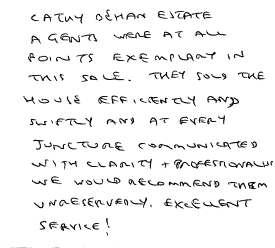 CATHY DEHAN ESTATE
AGENTS WERE AT ALL
POINTS EXEMPLARY IN
THIS SALE. THEY SOLD THE
HOUSE EFFICIENTLY AND
SWIFTLY AND AT EVERY
JUNCTURE COMMUNICATED
WITH CLARITY + PROFESSIONALIS
WE WOULD RECOMMEND THEM
UNRESERVEDLY. EXCELLENT
SERVICE!